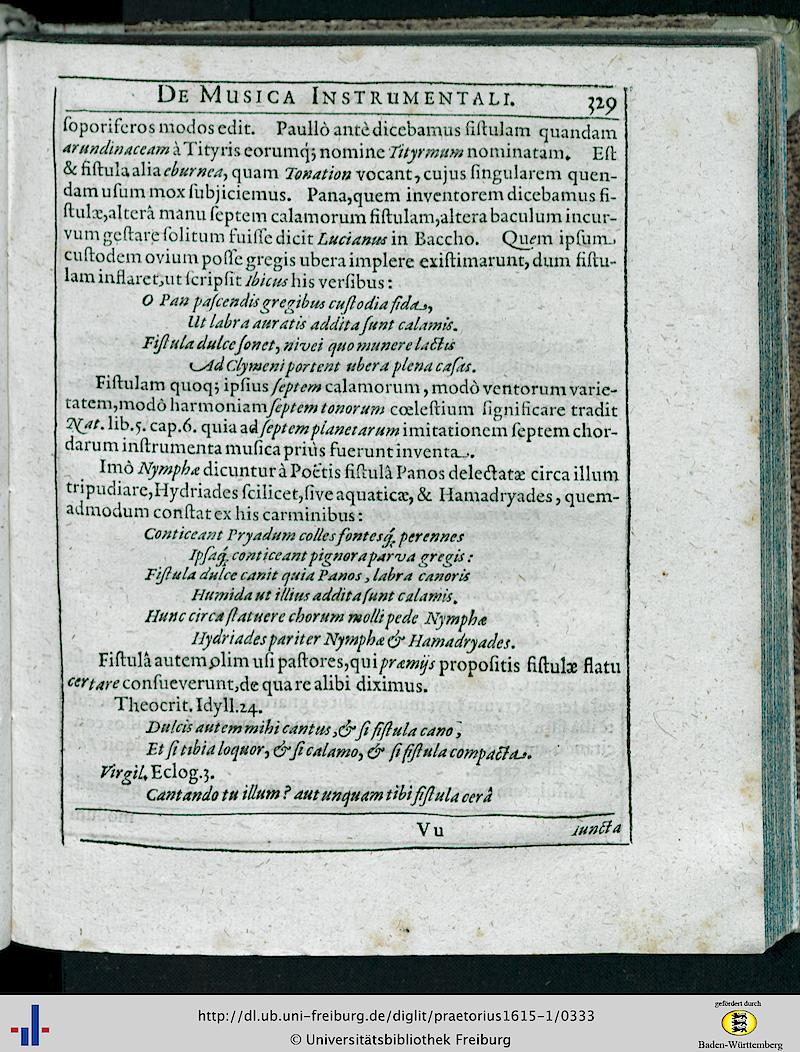 DE MUSICA INSTRUMENTALI. 329
ſoporiferos modos edit. Paullò antè dicebamus fiſtulam quandam
arundinaceam à Tityris eorumq́; nomine Tityrmum nominatam. Eſt
& fiſtula alia eburnea, quam Tonation vocant, cujus ſingularem quen-
dam uſum mox ſubjiciemus. Pana, quem inventorem dicebamus fi-
ſtulæ, alterâ manu ſeptem calamorum fiſtulam, altera baculum incur-
vum geſtare ſolitum fuiſſe dicit Lucianus in Baccho. Quem ipſum
cuſtodem ovium poſſe gregis ubera implere exiſtimarunt, dum fiſtu-
lam inflaret, ut ſcripſit Ibicus his verſibus:
O Pan paſcendis gregibus cuſtodia fida,
Ut labra auratis addita ſunt calamis.
Fiſtula dulce ſonet, nivei quo munere lactis
Ad Clymeni portent ubera plena caſas.
Fiſtulam quoq; ipſius ſeptem calamorum, modò ventorum varie-
tatem, modò harmoniam ſeptem tonorum cœleſtium ſignificare tradit
Nat. lib. 5. cap. 6. quia ad ſeptem planetarum imitationem ſeptem chor-
darum inſtrumenta muſica priùs fuerunt inventa.
Imò Nymphæ dicuntur à Poëtis fiſtulâ Panos delectatæ circa illum
tripudiare, Hydriades ſcilicet, ſive aquaticæ, & Hamadryades, quem-
admodum conſtat ex his carminibus:
Conticeant Pryadum colles fontesq́; perennes
Ipſaq́; conticeant pignora parva gregis:
Fiſtula dulce canit quia Panos, labra canoris
Humida ut illius addita ſunt calamis.
Hunc circa ſtatuere chorum molli pede Nymphæ
Hydriades pariter Nymphæ & Hamadryades.
Fiſtulâ autem olim uſi paſtores, qui præmijs propoſitis fiſtulæ flatu
certare conſueverunt, de qua re alibi diximus.
Theocrit. Idyll. 24.
Dulcis autem mihi cantus, & ſi fiſtula cano,
Et ſi tibia loquor, & ſi calamo, & ſi fiſtula compacta.
Virgil. Eclog. 3.
Cantando tu illum? aut unquam tibi fiſtula cerâ
Vu iuncta
http://dl.ub.uni-freiburg.de/diglit/praetorius1615-1/0333
© Universitätsbibliothek Freiburg
gefördert durch
Baden-Württemberg